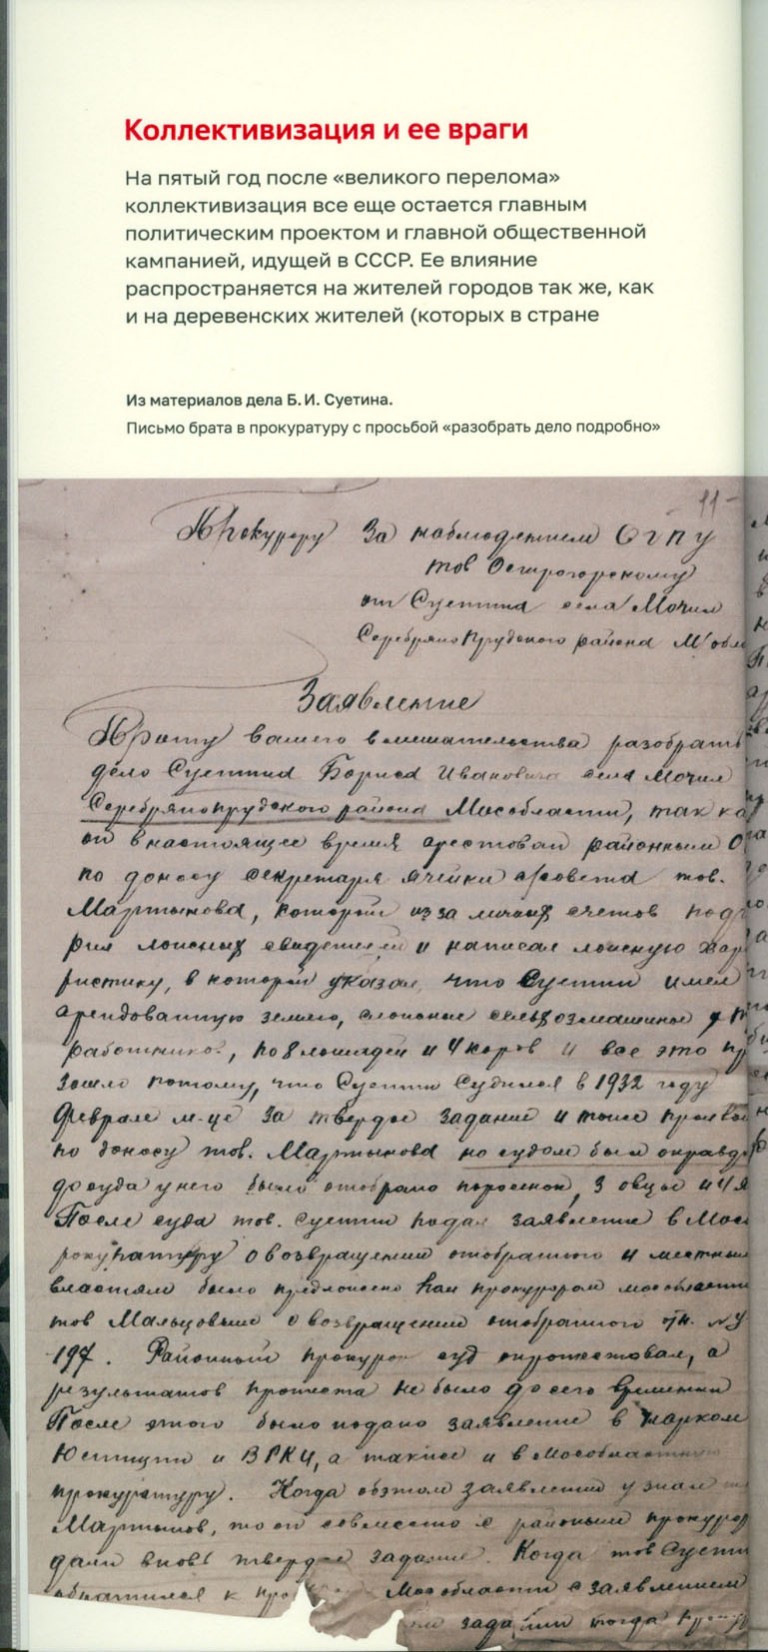 Коллективизация и ее враги
На пятый год после «великого перелома»
коллективизация все еще остается главным
политическим проектом и главной общественной
кампанией, идущей в СССР. Ее влияние
распространяется на жителей городов так же, как
и на деревенских жителей (которых в стране
Из материалов дела Б. И. Суетина.
Письмо брата в прокуратуру с просьбой «разобрать дело подробно»
11-
Прокурору За наблюдением ОГПУ
тов Острогорскому
от Суетина села Мочил
Серебряно Прудского района М обл
Заявление
Прошу вашего вмешательства разобрать
дело Суетина Бориса Ивановича села Мочил
Серебрянопрудского района Мособласти, так ка
он в настоящее время арестован районным О
по доносу секретаря ячейки с/совета тов.
Мартынова, который из за личных счетов под
рил ложных свидетелей и написал ложную хар
ристику, в которой указал, что Суетин имел
арендованную землю, сложные сельхозмашины
работников, по 8 лошадей и 4 коров и все это пр
зошло потому, что Суетин Судился в 1932 году
Феврале м-це за твердое задание и тоже
по доносу тов. Мартынова но судом был оправд
до суда у него было отобрано поросенок, 3 овцы и 4
После суда тов. Суетин подал заявление в Мос
рокуратуру о возвращении отобранного и местным
властям было предложено прокурором мособласти
тов Мальцовым о возвращении отобранного
197. Районный прокурор суд опротестовал, а
результатов протеста не было до сего времени
После этого было подано заявление в Нарком
Юстиции и ВРКИ, а также и в Мособластную
прокуратуру. Когда об этом заявлении узнал
Мартынов, то он совместно с районым прокурор
дали вновь твердое задание. Когда тов Суетин
обратился к про Мособласти с заявлением
задании тогда